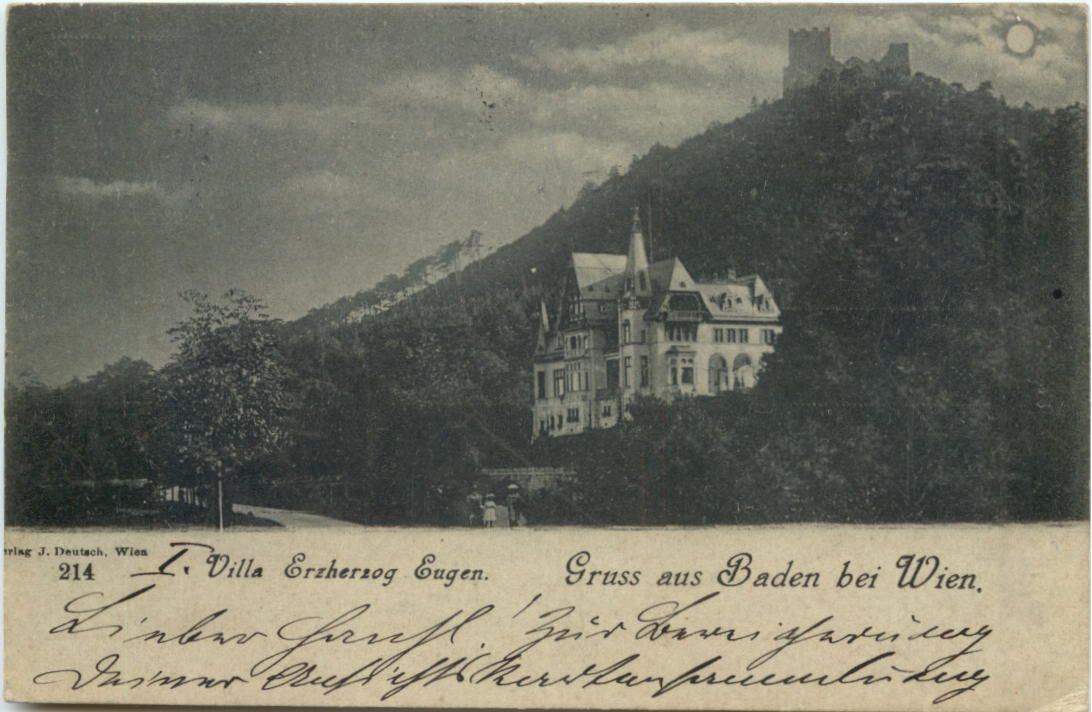 erlag J. Deutsch, Wien
214 I. Villa Erzherzog Eugen. Gruss aus Baden bei Wien.
Lieber Hansl! Zur Bereicherung
Deiner Ansichtskartensammlung